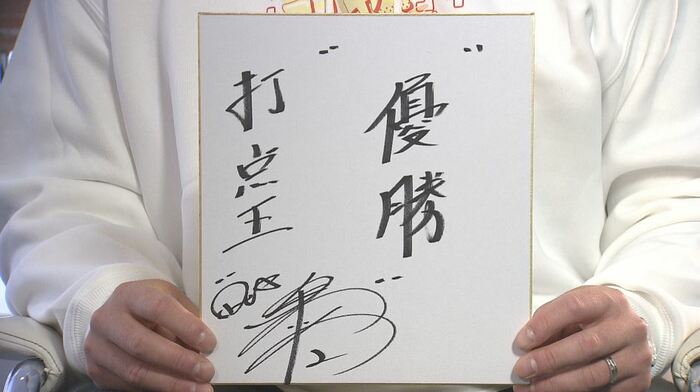 "優勝"
打点王
2